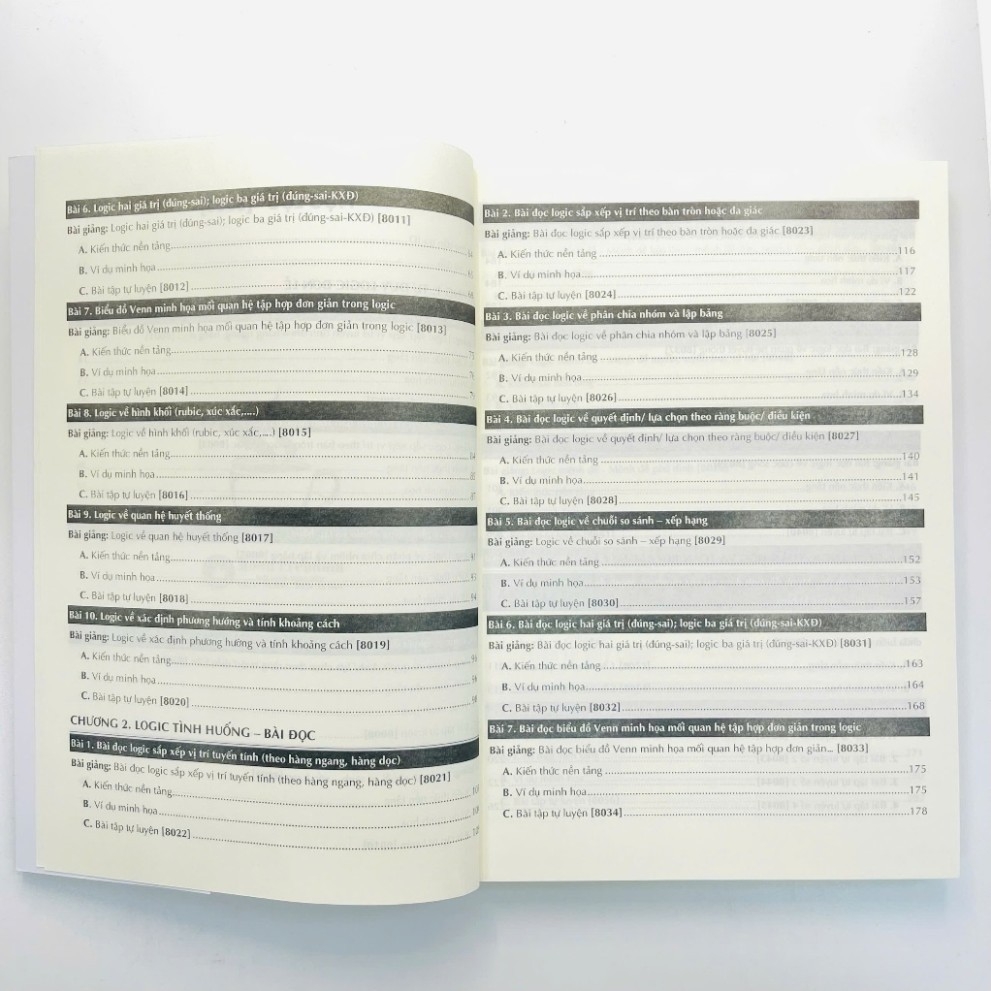 Bài 6. Logic hai giá trị (đúng-sai); logic ba giá trị (đúng-sai-KXĐ)
Bài giảng: Logic hai giá trị (đúng-sai); logic ba giá trị (đúng-sai-KXĐ) [8011]
A. Kiến thức nền tảng
B. Ví dụ minh họa
C. Bài tập tự luyện [8012]
Bài 7. Biểu đồ Venn minh họa mối quan hệ tập hợp đơn giản trong logic
Bài giảng: Biểu đồ Venn minh họa mối quan hệ tập hợp đơn giản trong logic [8013]
A. Kiến thức nền tảng
B. Ví dụ minh họa
C. Bài tập tự luyện [8014]
Bài 8. Logic về hình khối (rubic, xúc xắc,....)
Bài giảng: Logic về hình khối (rubic, xúc xắc,...) [8015]
A. Kiến thức nền tảng
B. Ví dụ minh họa
C. Bài tập tự luyện [8016]
Bài 9. Logic về quan hệ huyết thống
Bài giảng: Logic về quan hệ huyết thống [8017]
A. Kiến thức nền tảng
B. Ví dụ minh họa
C. Bài tập tự luyện [8018]
Bài 10. Logic về xác định phương hướng và tính khoảng cách
Bài giảng: Logic về xác định phương hướng và tính khoảng cách [8019]
A. Kiến thức nền tảng
B. Ví dụ minh họa
C. Bài tập tự luyện [8020]
CHƯƠNG 2. LOGIC TÌNH HUỐNG – BÀI ĐỌC
Bài 1. Bài đọc logic sắp xếp vị trí tuyến tính (theo hàng ngang, hàng dọc)
Bài giảng: Bài đọc logic sắp xếp vị trí tuyến tính (theo hàng ngang, hàng dọc) [8021]
A. Kiến thức nền tảng
B. Ví dụ minh họa
C. Bài tập tự luyện [8022]
Bài 2. Bài đọc logic sắp xếp vị trí theo bàn tròn hoặc đa giác
Bài giảng: Bài đọc logic sắp xếp vị trí theo bàn tròn hoặc đa giác [8023]
A. Kiến thức nền tảng 116
B. Ví dụ minh họa 117
C. Bài tập tự luyện [8024] 122
Bài 3. Bài đọc logic về phân chia nhóm và lập bảng
Bài giảng: Bài đọc logic về phân chia nhóm và lập bảng [8025]
A. Kiến thức nền tảng 128
B. Ví dụ minh họa 129
C. Bài tập tự luyện [8026] 134
Bài 4. Bài đọc logic về quyết định/ lựa chọn theo ràng buộc/ điều kiện
Bài giảng: Bài đọc logic về quyết định/ lựa chọn theo ràng buộc/ điều kiện [8027]
A. Kiến thức nền tảng 140
B. Ví dụ minh họa 141
C. Bài tập tự luyện [8028] 145
Bài 5. Bài đọc logic về chuỗi so sánh – xếp hạng
Bài giảng: Logic về chuỗi so sánh – xếp hạng [8029]
A. Kiến thức nền tảng 152
B. Ví dụ minh họa 153
C. Bài tập tự luyện [8030] 157
Bài 6. Bài đọc logic hai giá trị (đúng-sai); logic ba giá trị (đúng-sai-KXĐ)
Bài giảng: Bài đọc logic hai giá trị (đúng-sai); logic ba giá trị (đúng-sai-KXĐ) [8031]
A. Kiến thức nền tảng 163
B. Ví dụ minh họa 164
C. Bài tập tự luyện [8032] 168
Bài 7. Bài đọc biểu đồ Venn minh họa mối quan hệ tập hợp đơn giản trong logic
Bài giảng: Bài đọc biểu đồ Venn minh họa mối quan hệ tập hợp đơn giản... [8033]
A. Kiến thức nền tảng 175
B. Ví dụ minh họa 175
C. Bài tập tự luyện [8034] 178